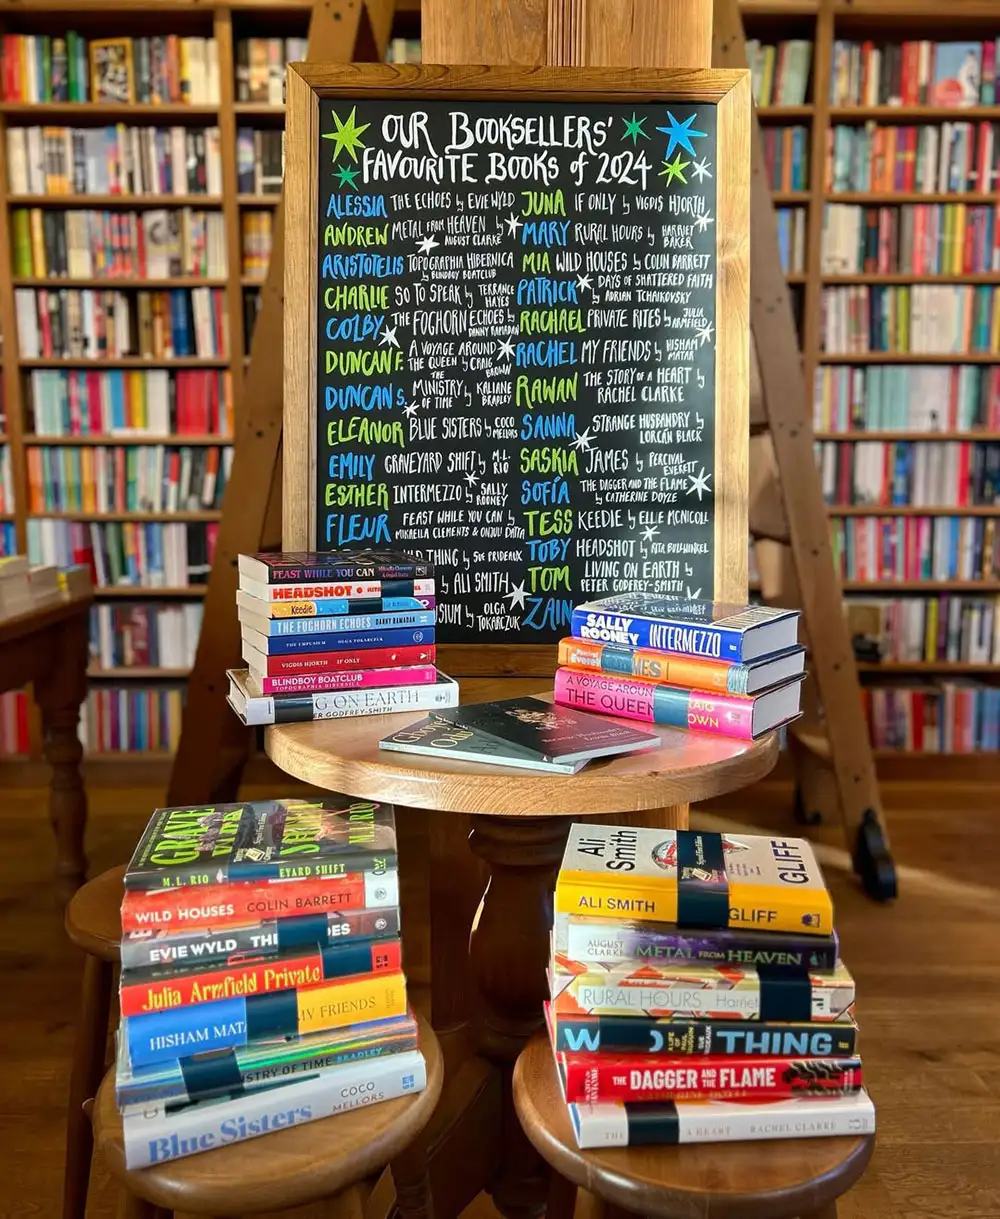 OUR BOOKSELLERS'
FAVOURITE BOOKS of 2024
ALESSIA THE ECHOES by EVIE WYLD
ANDREW METAL FROM HEAVEN by AUGUST CLARKE
ARISTOTELIS TOPOGRAPHIA HIBERNICA by BLINDBOY BOATCLUB
CHARLIE SO TO SPEAK by TERRANCE HAYES
COLBY THE FOGHORN ECHOES by DANNY RAMADAN
DUNCAN F. A VOYAGE AROUND THE QUEEN by CRAIG BROWN
DUNCAN S. THE MINISTRY OF TIME by KALIANE BRADLEY
ELEANOR BLUE SISTERS by COCO MELLORS
EMILY GRAVEYARD SHIFT by M.L. RIO
ESTHER INTERMEZZO by SALLY ROONEY
FLEUR FEAST WHILE YOU CAN by MIKAELLA CLEMENTS & ONJULI DATTA
THING by SUE PRIDEAUX
by ALI SMITH
SIUM by OLGA TOKARCZUK
JUNA IF ONLY by VIGDIS HJORTH
MARY RURAL HOURS by HARRIET BAKER
MIA WILD HOUSES by COLIN BARRETT
PATRICK DAYS OF SHATTERED FAITH by ADRIAN TCHAIKOVSKY
RACHAEL PRIVATE RITES by JULIA ARMFIELD
RACHEL MY FRIENDS by HISHAM MATAR
RAWAN THE STORY OF A HEART by RACHEL CLARKE
SANNA STRANGE HUSBANDRY by LORCÁN BLACK
SASKIA JAMES by PERCIVAL EVERETT
SOFÍA THE DAGGER AND THE FLAME by CATHERINE DOYLE
TESS KEEDIE by ELLE MCNICOLL
TOBY HEADSHOT by RITA BULLWINKEL
TOM LIVING ON EARTH by PETER GODFREY-SMITH
ZAIN
FEAST WHILE YOU CAN Mikaella Clements & Onjuli Datta
HEADSHOT
Keedie
THE FOGHORN ECHOES DANNY RAMADAN
THE EMPUSIUM OLGA TOKARCZUK
VIGDIS HJORTH IF ONLY
BLINDBOY BOATCLUB
TOPOGRAPHIA HIBERNICA
G ON EARTH
ER GODFREY-SMITH
SALLY ROONEY INTERMEZZO
Percival Everett MES
A VOYAGE AROUN
THE QUEEN
RAIG
OWN
M.L. RIO EYARD SHIFT
WILD HOUSES COLIN BARRETT
EVIE WYLD THE OES
Julia Armfield Private
HISHAM MATA MY FRIENDS
ISTRY OF TIME BRADLEY
Blue Sisters COCO MELLORS
Ali Smith
GLIFF
ALI SMITH GLIFF
AUGUST CLARKE METAL FROM HEAVEN
RURAL HOURS Harriet
W THING
THE DAGGER AND THE FLAME
CATHERINE DOYLE
THE A HEART RACHEL CLARKE